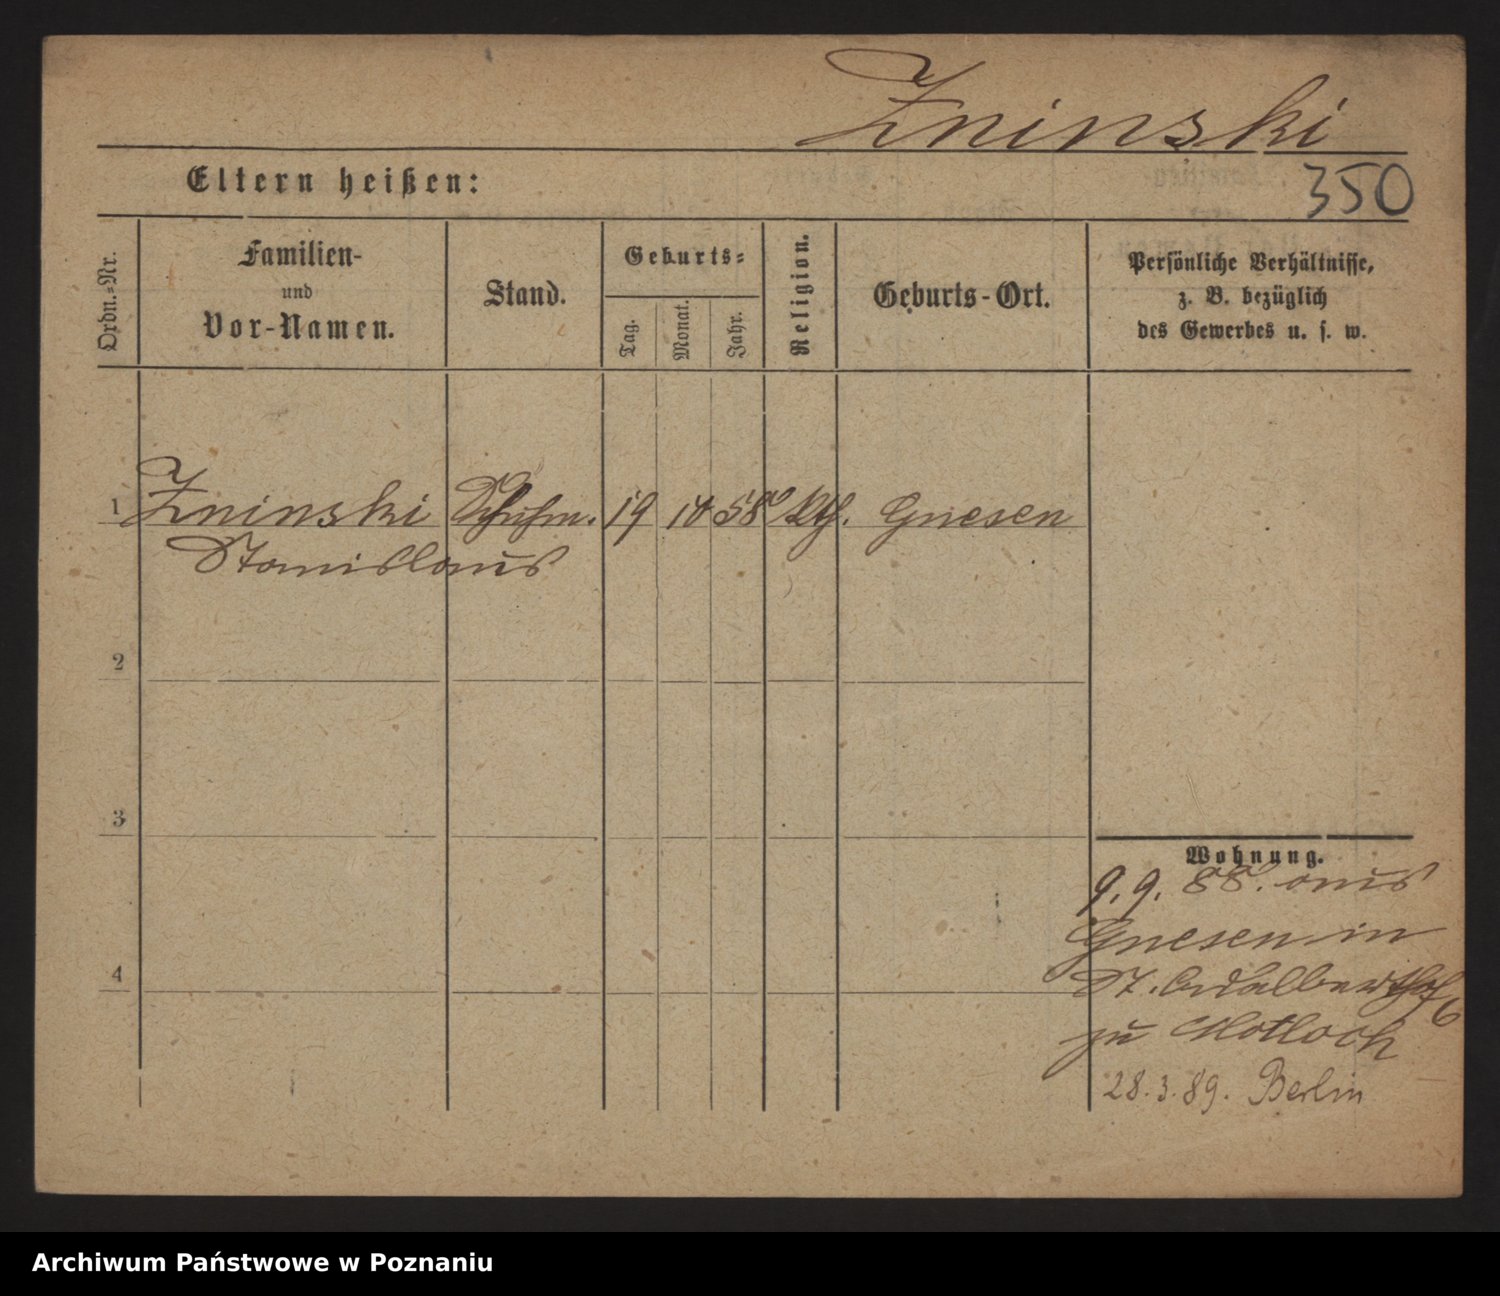 Zninski
Eltern heißen:
350
Ordn.=Nr.
Familien-
und
Vor-Namen.
Stand.
Geburts=
Tag.
Monat.
Jahr.
Religion.
Geburts-Ort.
Persönliche Verhältnisse,
z. B. bezüglich
des Gewerbes u. s. w.
1 Zninski Schuhm. 19 10 58 kth. Gnesen
Stanislaus
2
3
4
Wohnung.
9. 9. 88. aus
Gnesen in
St. Adalberthof 6
zu Motloch
28. 3. 89. Berlin
Archiwum Państwowe w Poznaniu